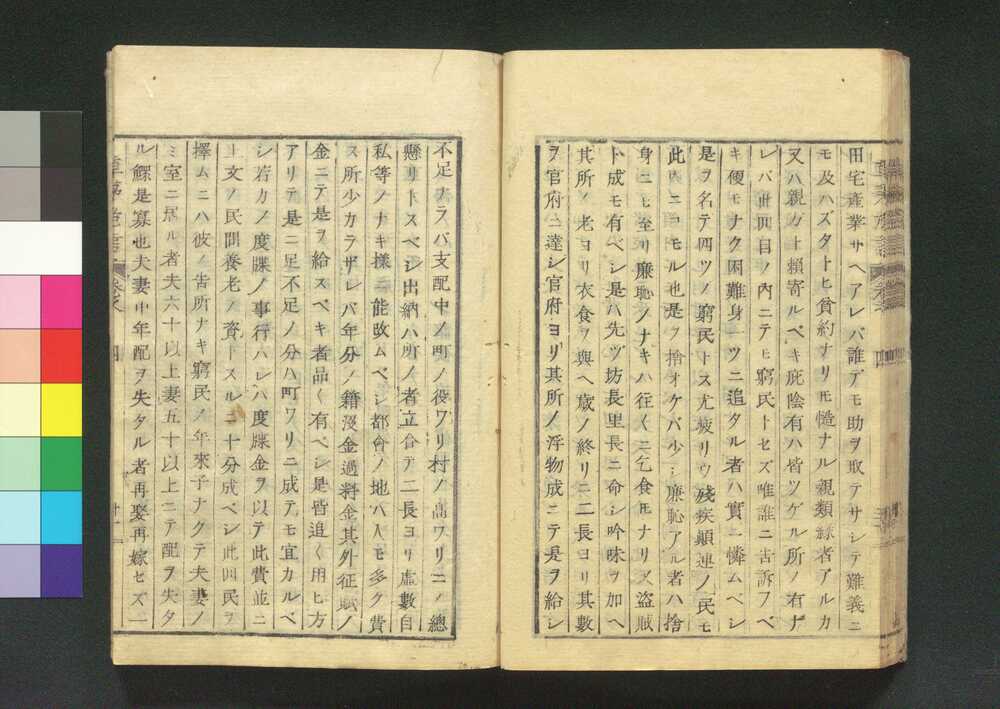 田宅産業サヘアレバ誰デモ助ヲ取テサシテ難義ニ
モ及ハズタトヒ貧約ナリモ慥ナル親類縁者アルカ
又ハ親カ上頼寄ルベキ庇陰有ハ皆ツゲル所ノ有ナ
レバ此四目ノ内ニテモ窮民トセズ唯誰ニ告訴フベ
キ便モナク困難身一ツニ追タル者ハ實ニ憐ムベシ
是ヲ名テ四ツノ窮民トス尤疲リウ殘疾顛連ノ民モ
此内ニコモル也是ヲ捨オケバ少シ廉恥アル者ハ捨
身ニモ至リ廉恥ノナキハ往〱ニ乞食モナリ又盗賊
ト成モ有ベシ是ハ先ヅ坊長里長ニ命シ吟味ヲ加ヘ
其所ノ老ヨリ衣食ヲ與ヘ歳ノ終リニ二長ヨリ其數
ヲ官府ニ達シ官府ヨリ其所ノ浮物成ニテ是ヲ給シ
不足ナラバ支配中ノ町ノ役ワリ村ノ高ワリニノ總
懸リトスベシ出納ハ所ノ者立合テ二長ヨリ虚數自
私等ノナキ樣ニ能改ムベシ都會ノ地ハ人モ多ク費
ス所少カラザレバ年分ノ籍没金過料金其外征賦ノ
金ニテ是ヲ給スベキ者品〱有ベシ是皆追〱用ヒ方
アリテ是ニ足不足ノ分ハ町ワリニ成テモ宜カルベ
シ若カノ度牒ノ事行ハレバ度牒金ヲ以テ此費並ニ
上文ノ民間養老ノ資トスルニ十分成ベシ此四民ヲ
擇ムニハ彼ノ告所ナキ窮民ノ年來子ナクテ夫妻ノ
ミ室ニ居ル者夫六十以上妻五十以上ニテ配ヲ失タ
ル鰥是寡也夫妻中年配ヲ失タル者再娶再嫁セズ一